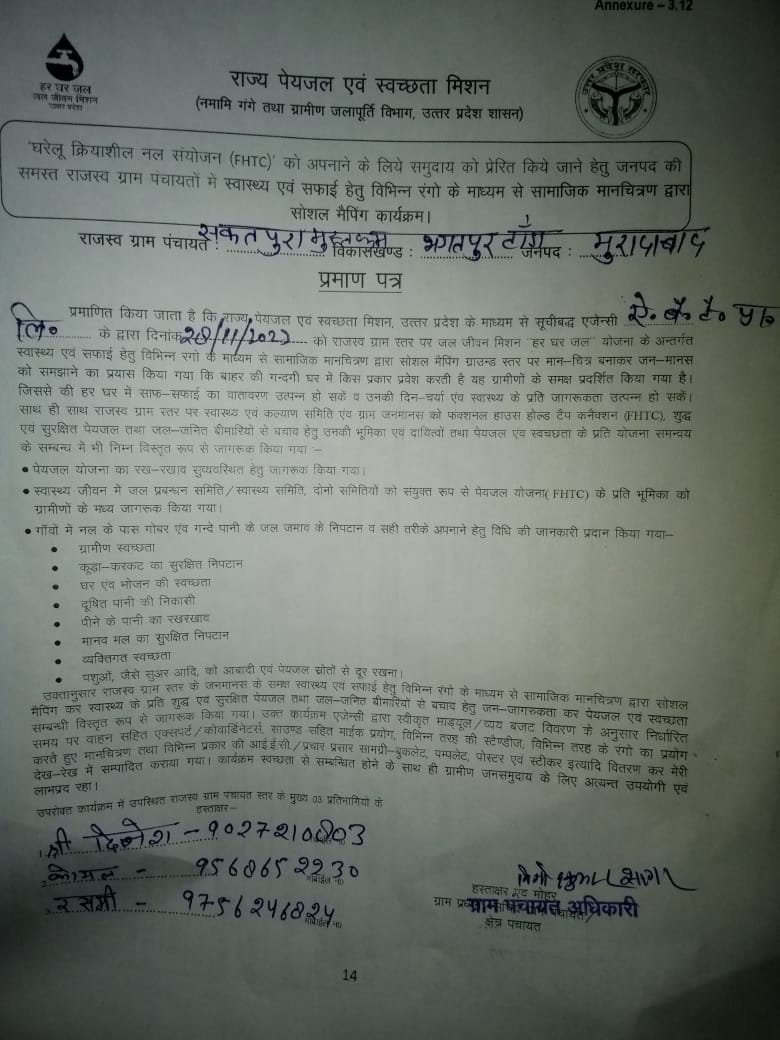 Annexure – 3.12
हर घर जल
जल जीवन मिशन
उत्तर प्रदेश
उत्तर प्रदेश सरकार
राज्य पेयजल एवं स्वच्छता मिशन
(नमामि गंगे तथा ग्रामीण जलापूर्ति विभाग, उत्तर प्रदेश शासन)
'घरेलू क्रियाशील नल संयोजन (FHTC)' को अपनाने के लिये समुदाय को प्रेरित किये जाने हेतु जनपद की
समस्त राजस्व ग्राम पंचायतों में स्वास्थ्य एवं सफाई हेतु विभिन्न रंगो के माध्यम से सामाजिक मानचित्रण द्वारा
सोशल मैपिंग कार्यक्रम।
राजस्व ग्राम पंचायत : सकतपुरा मुस्तकम विकासखण्ड : भगतपुर टाँग जनपद : मुरादाबाद
प्रमाण पत्र
प्रमाणित किया जाता है कि राज्य पेयजल एवं स्वच्छता मिशन, उत्तर प्रदेश के माध्यम से सूचीबद्ध एजेन्सी ऐ० के० टै० प्रा०
लि० के द्वारा दिनांक 28/11/2022 को राजस्व ग्राम स्तर पर जल जीवन मिशन "हर घर जल" योजना के अन्तर्गत
स्वास्थ्य एवं सफाई हेतु विभिन्न रंगो के माध्यम से सामाजिक मानचित्रण द्वारा सोशल मैपिंग ग्राउन्ड स्तर पर मान–चित्र बनाकर जन–मानस
को समझाने का प्रयास किया गया कि बाहर की गन्दगी घर में किस प्रकार प्रवेश करती है यह ग्रामीणों के समक्ष प्रदर्शित किया गया है।
जिससे की हर घर में साफ–सफाई का वातावरण उत्पन्न हो सकें व उनकी दिन–चर्या एवं स्वास्थ्य के प्रति जागरूकता उत्पन्न हो सकें।
साथ ही साथ राजस्व ग्राम स्तर पर स्वास्थ्य एवं कल्याण समिति एवं ग्राम जनमानस को फंक्शनल हाउस होल्ड टैप कनैक्शन (FHTC), शुद्ध
एवं सुरक्षित पेयजल तथा जल–जनित बीमारियों से बचाव हेतु उनकी भूमिका एवं दायित्वों तथा पेयजल एंव स्वच्छता के प्रति योजना समन्वय
के सम्बन्ध में भी निम्न विस्तृत रूप से जागरूक किया गया :–
• पेयजल योजना का रख–रखाव सुव्यवस्थित हेतु जागरूक किया गया।
• स्वास्थ्य जीवन में जल प्रबन्धन समिति/स्वास्थ्य समिति, दोनो समितियों को संयुक्त रूप से पेयजल योजना( FHTC) के प्रति भूमिका को
ग्रामीणों के मध्य जागरूक किया गया।
• गॉवों में नल के पास गोबर एंव गन्दे पानी के जल जमाव के निपटान व सही तरीके अपनाने हेतु विधि की जानकारी प्रदान किया गया–
• ग्रामीण स्वच्छता
• कूडा–करकट का सुरक्षित निपटान
• घर एंव भोजन की स्वच्छता
• दूषित पानी की निकासी
• पीने के पानी का रखरखाव
• मानव मल का सुरक्षित निपटान
• व्यक्तिगत स्वच्छता
• पशुओं, जैसे सुअर आदि, को आबादी एवं पेयजल स्रोतों से दूर रखना।
उक्तानुसार राजस्व ग्राम स्तर के जनमानस के समक्ष स्वास्थ्य एवं सफाई हेतु विभिन्न रंगो के माध्यम से सामाजिक मानचित्रण द्वारा सोशल
मैपिंग कर स्वास्थ्य के प्रति शुद्ध एवं सुरक्षित पेयजल तथा जल–जनित बीमारियों से बचाव हेतु जन–जागरूकता कर पेयजल एवं स्वच्छता
सम्बन्धी विस्तृत रूप से जागरूक किया गया। उक्त कार्यक्रम एजेन्सी द्वारा स्वीकृत माड्यूल/व्यय बजट विवरण के अनुसार निर्धारित
समय पर वाहन सहित एक्सपर्ट/कोवार्डिनेटर्स, साउण्ड सहित माईक प्रयोग, विभिन्न तरह की स्टैण्डीज, विभिन्न तरह के रंगो का प्रयोग
करते हुए मानचित्रण तथा विभिन्न प्रकार की आई.ई.सी./प्रचार प्रसार सामग्री–बुकलेट, पम्पलेट, पोस्टर एवं स्टीकर इत्यादि वितरण कर मेरी
देख–रेख में सम्पादित कराया गया। कार्यक्रम स्वच्छता से सम्बन्धित होने के साथ ही ग्रामीण जनसमुदाय के लिए अत्यन्त उपयोगी एवं
लाभप्रद रहा।
उपरोक्त कार्यक्रम में उपस्थित राजस्व ग्राम पंचायत स्तर के मुख्य 03 प्रतिभागियों के
हस्ताक्षर:–
1. श्री दिनेश – 9027210003
2. कोमल – 9568652230 मोबाईल न0
3. रसमी – 9756246824 मोबाईल न0
हस्ताक्षर एवं मोहर
ग्राम पंचायत अधिकारी
क्षेत्र पंचायत
14